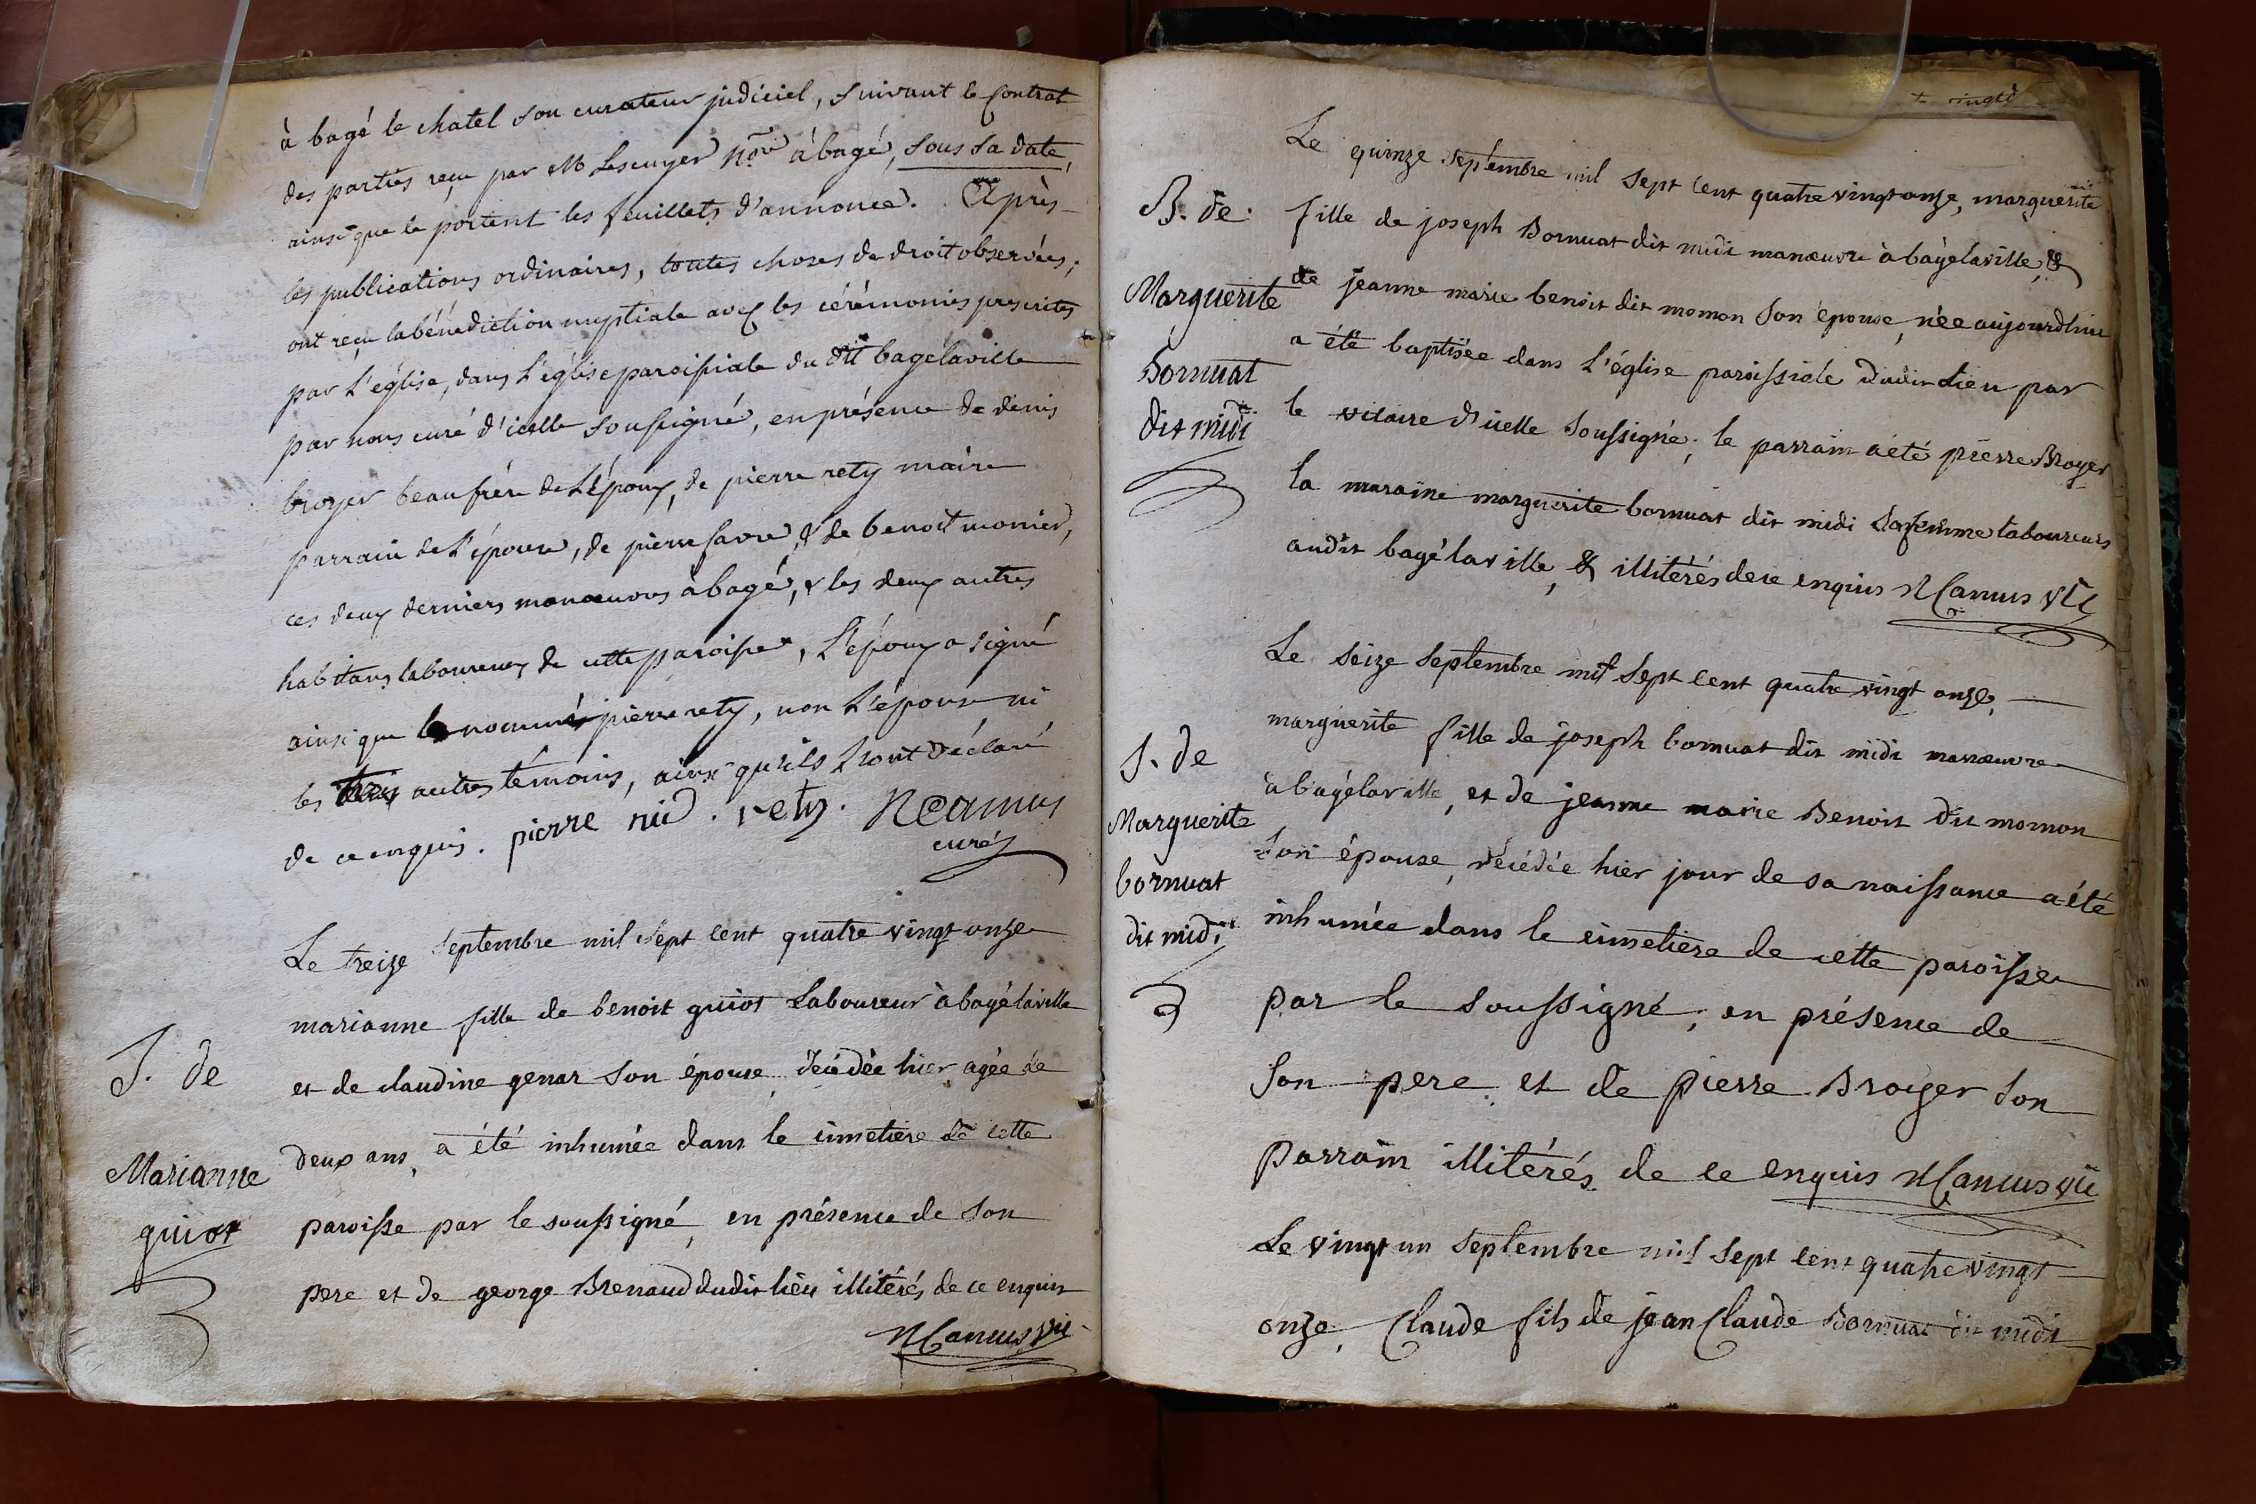 à bagé le chatel son curateur judiciel, suivant le Contrat
des parties reçu par M Lescuyer No.re à bagé, sous sa date,
ainsi que le portent les feuillets d'annonce. Après
les publications ordinaires, toutes choses de droit observées,
ont reçu la bénédiction nuptiale avec les cérémonies prescrites
par L'église, dans L'église paroissiale du dit bagélaville
par nous curé d'icelle soussigné, en présence de denis
broyer beaufrére de L'époux, de pierre rety maire
parrain de L'épouse, de pierre favre, & de benoit monier,
ces deux derniers manoeuvres à bagé, & les deux autres
habitans laboureurs de cette paroisse, L'époux a signé
ainsi que le nommé pierre rety, non L'épouse ni
les autres témoins, ainsi qu'ils L'ont déclaré
de ce enquis. pierre nid . rety. NCamus
curé
Le treize septembre mil sept cent quatre vingt onze
marianne fille de benoit guiot Laboureur à bagélaville
J. de
et de claudine genar son épouse, décédée hier agée de
deux ans, a été inhumée dans le cimetiere de cette
Marianne
guiot
paroisse par le soussigné, en présence de son
pere et de george Brenaud dudit lieu illitérés de ce enquis
NCamus vic
Le quinze septembre mil sept cent quatre vingt onze, marguerite
B. de
fille de joseph Bornuat dit midi manœuvre à bagélaville, &
Marguerite
de jeanne marie benoit dit momon son épouse, née aujourdhui
a été baptisée dans L'église paroissiale dudit Lieu par
Bornuat
dit midi
le vicaire d'icelle soussigné; le parrain a été pierre Broyer
la maraine marguerite bornuat dit midi sa femme laboureurs
audit bagélaville, & illitérés de ce enquis NCamus vic
Le seize septembre mil sept cent quatre vingt onze,
marguerite fille de joseph bornuat dit midi manœuvre
J. de
à bagélaville, et de jeanne marie Benoit dit momon
Marguerite
son épouse, décédée hier jour de sa naissance a été
bornuat
dit midi
inhumée dans le cimetiere de cette paroisse
par le soussigné, en présence de
son pere, et de pierre Broyer son
parrain illitérés de ce enquis NCamus vic
Le vingt un septembre mil sept cent quatre vingt
onze, Claude fils de jean Claude Bornuat dit midi